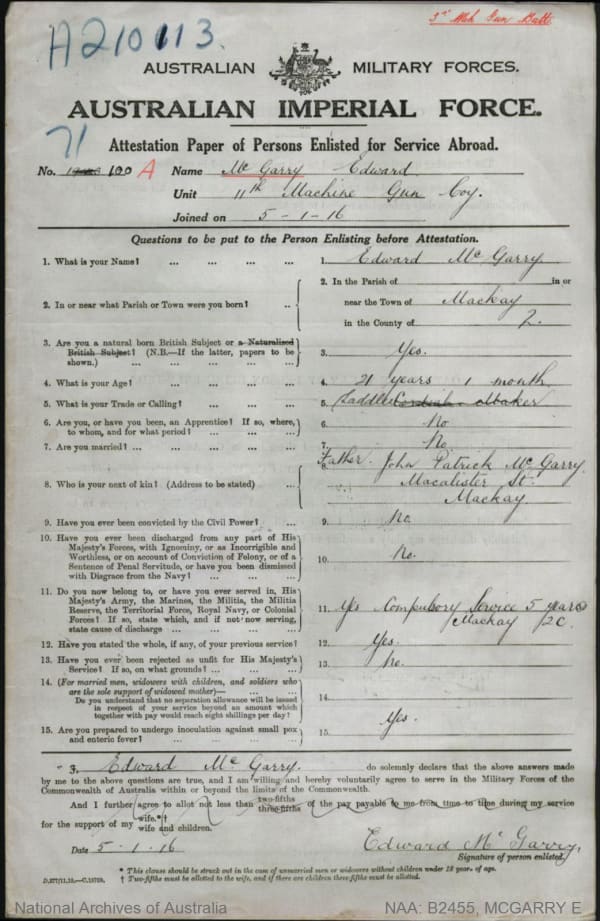 3rd Mch Gun Batt
A210113.
AUSTRALIAN MILITARY FORCES.
AUSTRALIAN IMPERIAL FORCE.
71
Attestation Paper of Persons Enlisted for Service Abroad.
No. 100 A Name McGarry Edward
Unit 11th Machine Gun Coy.
Joined on 5-1-16
Questions to be put to the Person Enlisting before Attestation.
1. What is your Name? ... ... ... ... 1. Edward McGarry
2. In or near what Parish or Town were you born? ... 2. In the Parish of in or
near the Town of Mackay
in the County of Q.
3. Are you a natural born British Subject or a Naturalised
British Subject? (N.B.—If the latter, papers to be
shown.) ... ... ... ... 3. Yes.
4. What is your Age? ... ... ... ... 4. 21 years 1 month
5. What is your Trade or Calling? ... ... ... 5. Saddler Cordial Maker
6. Are you, or have you been, an Apprentice? If so, where,
to whom, and for what period? ... ... ... 6. No
7. Are you married? ... ... ... ... 7. No
8. Who is your next of kin? (Address to be stated) ... 8. Father. John Patrick McGarry
Macalister St.
Mackay
9. Have you ever been convicted by the Civil Power? ... 9. No.
10. Have you ever been discharged from any part of His
Majesty's Forces, with Ignominy, or as Incorrigible and
Worthless, or on account of Conviction of Felony, or of a
Sentence of Penal Servitude, or have you been dismissed
with Disgrace from the Navy? ... ... ... 10. No.
11. Do you now belong to, or have you ever served in, His
Majesty's Army, the Marines, the Militia, the Militia
Reserve, the Territorial Force, Royal Navy, or Colonial
Forces? If so, state which, and if not now serving,
state cause of discharge ... ... ... 11. Yes Compulsory Service 5 years
Mackay 2C.
12. Have you stated the whole, if any, of your previous service? 12. Yes.
13. Have you ever been rejected as unfit for His Majesty's
Service? If so, on what grounds? ... ... ... 13. No.
14. (For married men, widowers with children, and soldiers who
are the sole support of widowed mother)— ... ...
Do you understand that no separation allowance will be issued
in respect of your service beyond an amount which
together with pay would reach eight shillings per day? 14.
15. Are you prepared to undergo inoculation against small pox
and enteric fever? ... ... ... ... 15. Yes.
I, Edward McGarry. do solemnly declare that the above answers made
by me to the above questions are true, and I am willing and hereby voluntarily agree to serve in the Military Forces of the
Commonwealth of Australia within or beyond the limits of the Commonwealth.
And I further agree to allot not less than two-fifths three-fifths of the pay payable to me from time to time during my service
for the support of my wife.*† wife and children.
Date 5-1-16 Edward McGarry,
Signature of person enlisted.
* This clause should be struck out in the case of unmarried men or widowers without children under 18 year. of age.
† Two-fifths must be allotted to the wife, and if there are children three-fifths must be allotted.
National Archives of Australia NAA: B2455, MCGARRY E